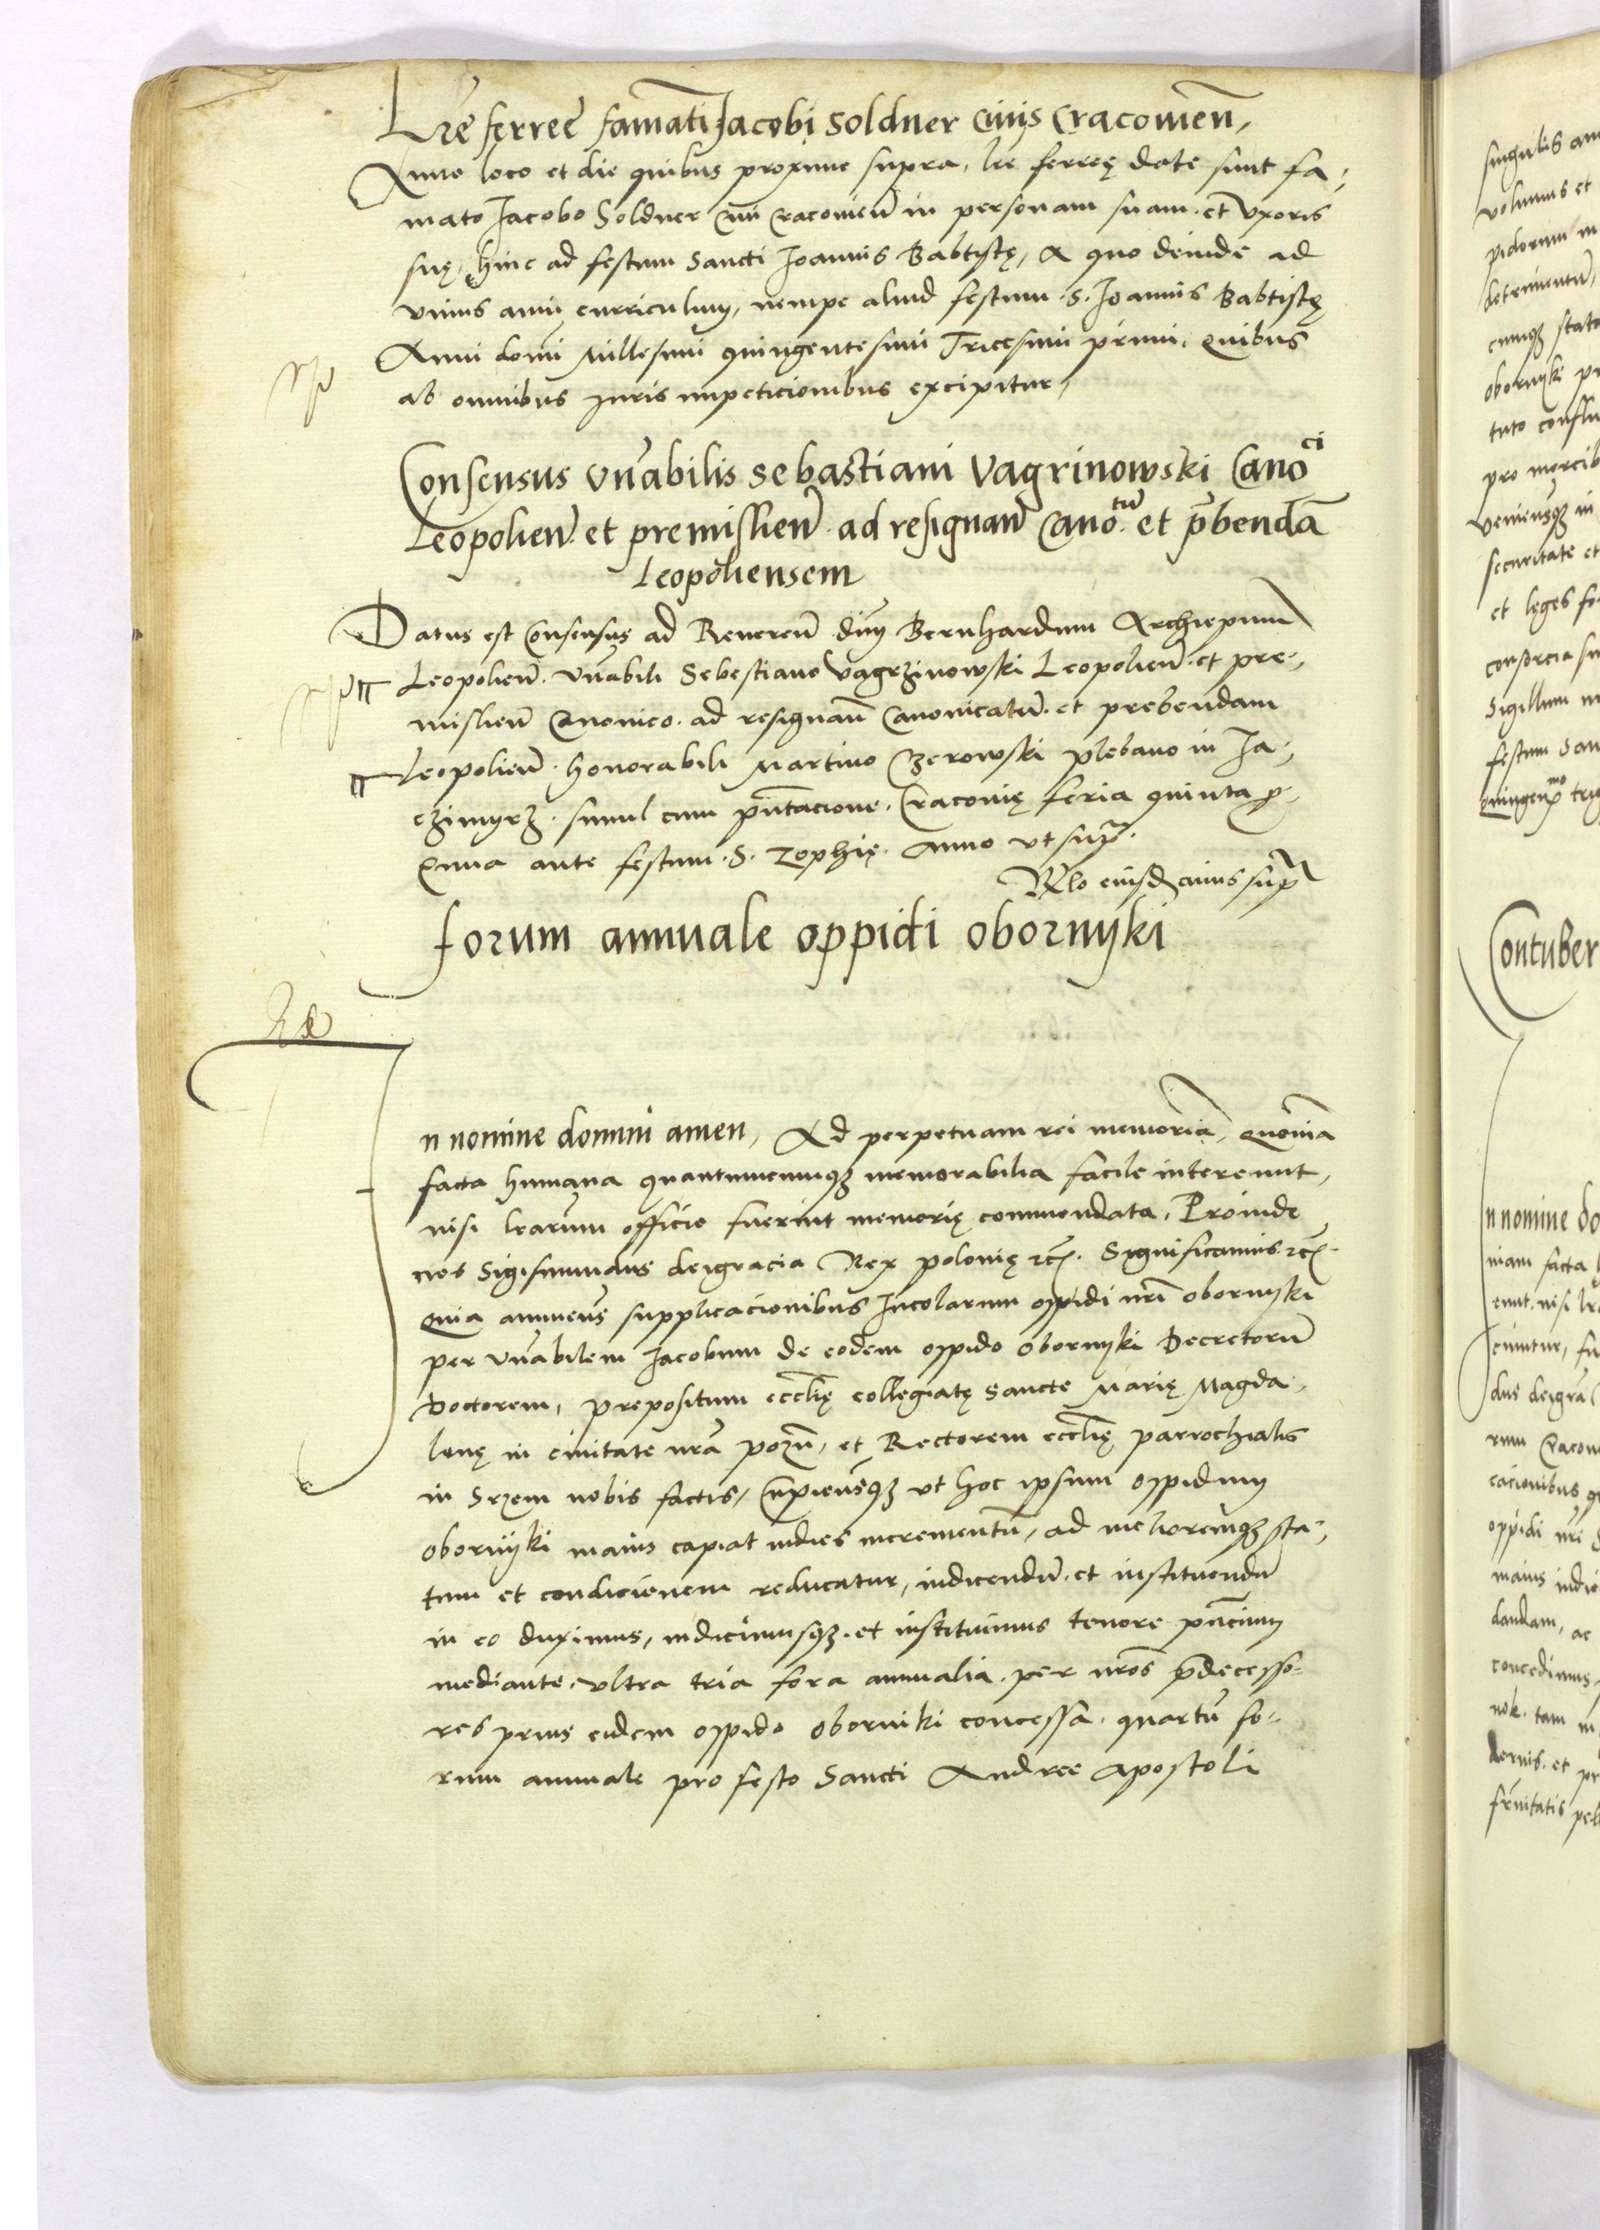 Lr̃e ferree famati Jacobi Soldner Civis Cracovien̄,
Anno loco et die quibus proxime supra, lr̃e ferreę date sunt fa-
mato Jacobo Soldner Civi Cracovien̄ in personam suam et Uxoris
suę, hinc ad festum Sancti Joannis Babtistę, A quo deinde ad
unius anni curriculum, nempe aliud festum S. Joannis Babtistę
Anni domi Millesimi quingentesimi Tricesimi primi, quibus
ab omnibus juris impeticionibus excipitur,
Consensus Vn̄abilis Sebastiani Vagrinowski Canoci
Leopolien̄ et premislien̄ ad resignan̄ Canotū et p̄bendā
Leopoliensem
Datus est Consensus ad Reveren̄ dn̄m Bernhardum Archiepum
Leopolien̄. Vn̄abili Sebestiano Vagrzinowski Leopolien̄ et pre-
mislien̄ Canonico ad resignan̄ Canonicatū et prebendam
Leopolien̄ honorabili Martino Czerowski plebano in Ja-
czimyrz simul cum pn̄tacione. Cracovię feria quinta p-
xima ante festum S. Zophię. Anno ut sup̄.
Rlo eiusd̄ cuius sup̄
Forum annuale oppidi obornyki
In nomine domini amen, Ad perpetuam rei memoriā, quoniā
facta humana quantumcumqz memorabilia facile intereunt,
nisi lr̄arum officio fuerint memorię commendata, Proinde
nos Sigismundus dei gracia Rex polonię etc̄. Significamus etc̄.
quia annuens supplicacionibus Incolarum oppidi nr̄i obornyki
per Vn̄abilem Jacobum de eodem oppido obornyki Decretorū
Doctorem, prepositum eccl̄ię collegiatę Sancte Marię Magda-
lenę in civitate nr̄a pozn̄, et Rectorem eccl̄ię parrochialis
in Srzem nobis factis, Cupiensqz ut hoc ipsum oppidum
obornyki maius capiat indies incrementū, ad melioremqz sta-
tum et condicionem reducatur, indicendū et instituendū
in eo duximus, indicimusqz et instituimus tenore pn̄cium
mediante, ultra tria fora annualia per nr̄os p̄decesso-
res prius eidem oppido oborniki concessa, quartū fo-
rum annuale pro festo Sancti Andree Apostoli
singulis
volumus et
pidorum
detrimentū,
obornyki
pro mercib
securitate et
et leges
Sigillum
festum San
Contuber
In nomine do
niam facta
dus dei gr̄a
cacionibus
oppidi nr̄i
maius indie
dandam, ac
concedimus